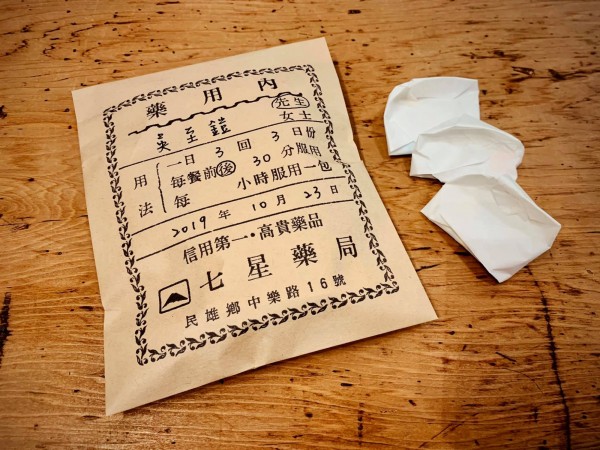 內用藥
吳至鎧
先生
女士
用法
一日 3 回 3 日份
每餐前後 30 分服用
每 小時服用一包
2019 年 10 月 23 日
信用第一・高貴藥品
七星藥局
民雄鄉中樂路16號